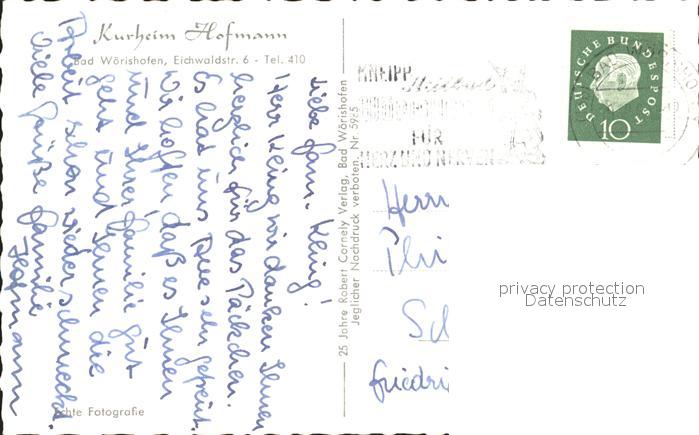 Kurheim Hofmann
Bad Wörishofen, Eichwaldstr. 6 - Tel. 410
Liebe Fam. Kling!
Herr Kling wir danken Ihnen
herzlich für das Päckchen.
Es hat uns sehr gefreut.
Wir hoffen daß es Ihnen
und Ihrer Familie gut
geht und Ihnen die
Arbeit schon wieder schmeckt.
Viele Grüße Familie
Hofmann
Echte Fotografie
25 Jahre Robert Cornely Verlag, Bad Wörishofen
Jeglicher Nachdruck verboten. Nr. 5925
KNEIPP
Heilbad
FÜR
HERZ UND NERVEN
DEUTSCHE BUNDESPOST
10
Herrn
Phi
Sch
Friedri
privacy protection
Datenschutz